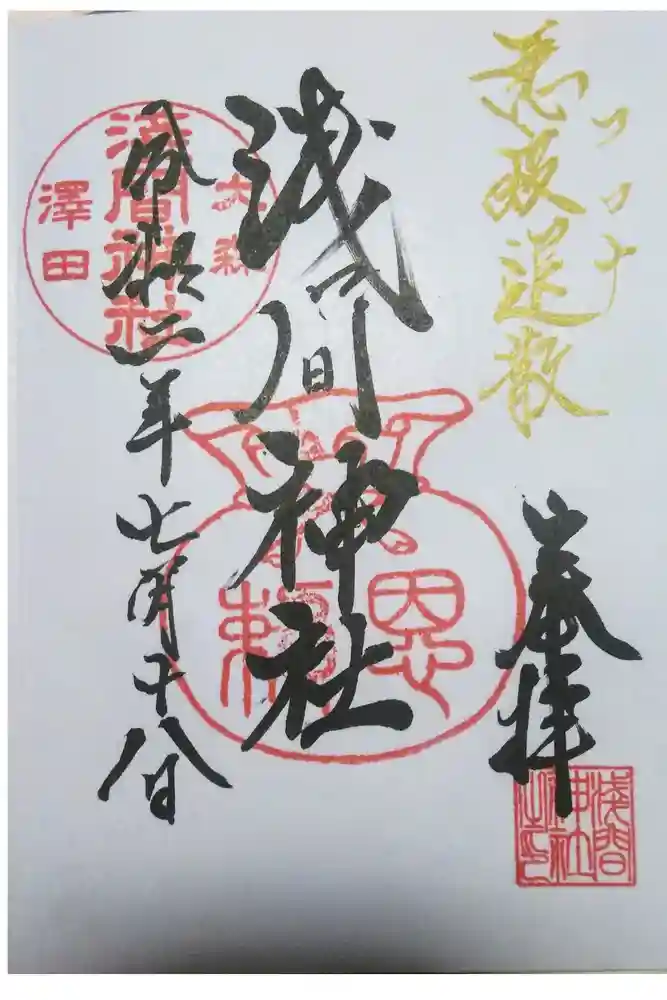 コロナ
悪疫退散
奉拝
浅間神社之印
浅間神社
恩頼
大森
浅間神社
澤田
令和二年七月十八日